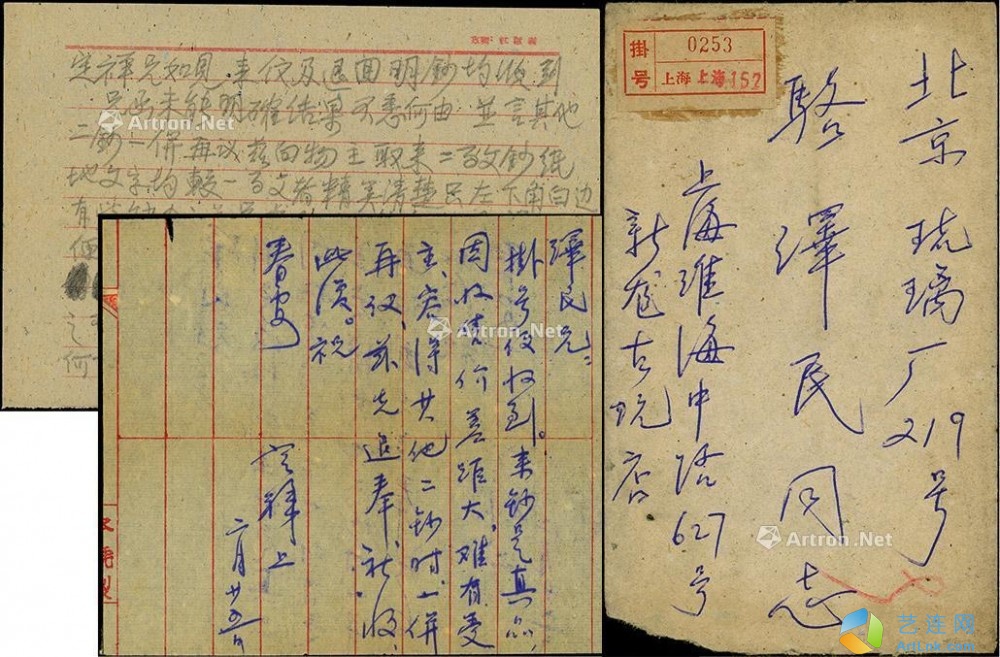 宝祥兄如见。来仪及退回明鈔均收到
只函未能明確结果不悉何由。並言其他
二鈔一併再议。兹向物主取来二百文鈔纸
地文字均較一百文者精美清楚只左下角白边
有
個
之
何
澤民兄：
掛号信收到。来鈔是真品，
因收售价差距大，难有受
主。容得其他二鈔时，一併
再议，兹先退奉，祈收，
此復。祝
春安
宝祥上
二月廿五日
掛号
0253
上海 上海 152
北京琉璃厂219号
駱澤民同志
上海淮海中路627号
新龙古玩店
Artron.Net
Artron.Net
Artron.Net
艺连网